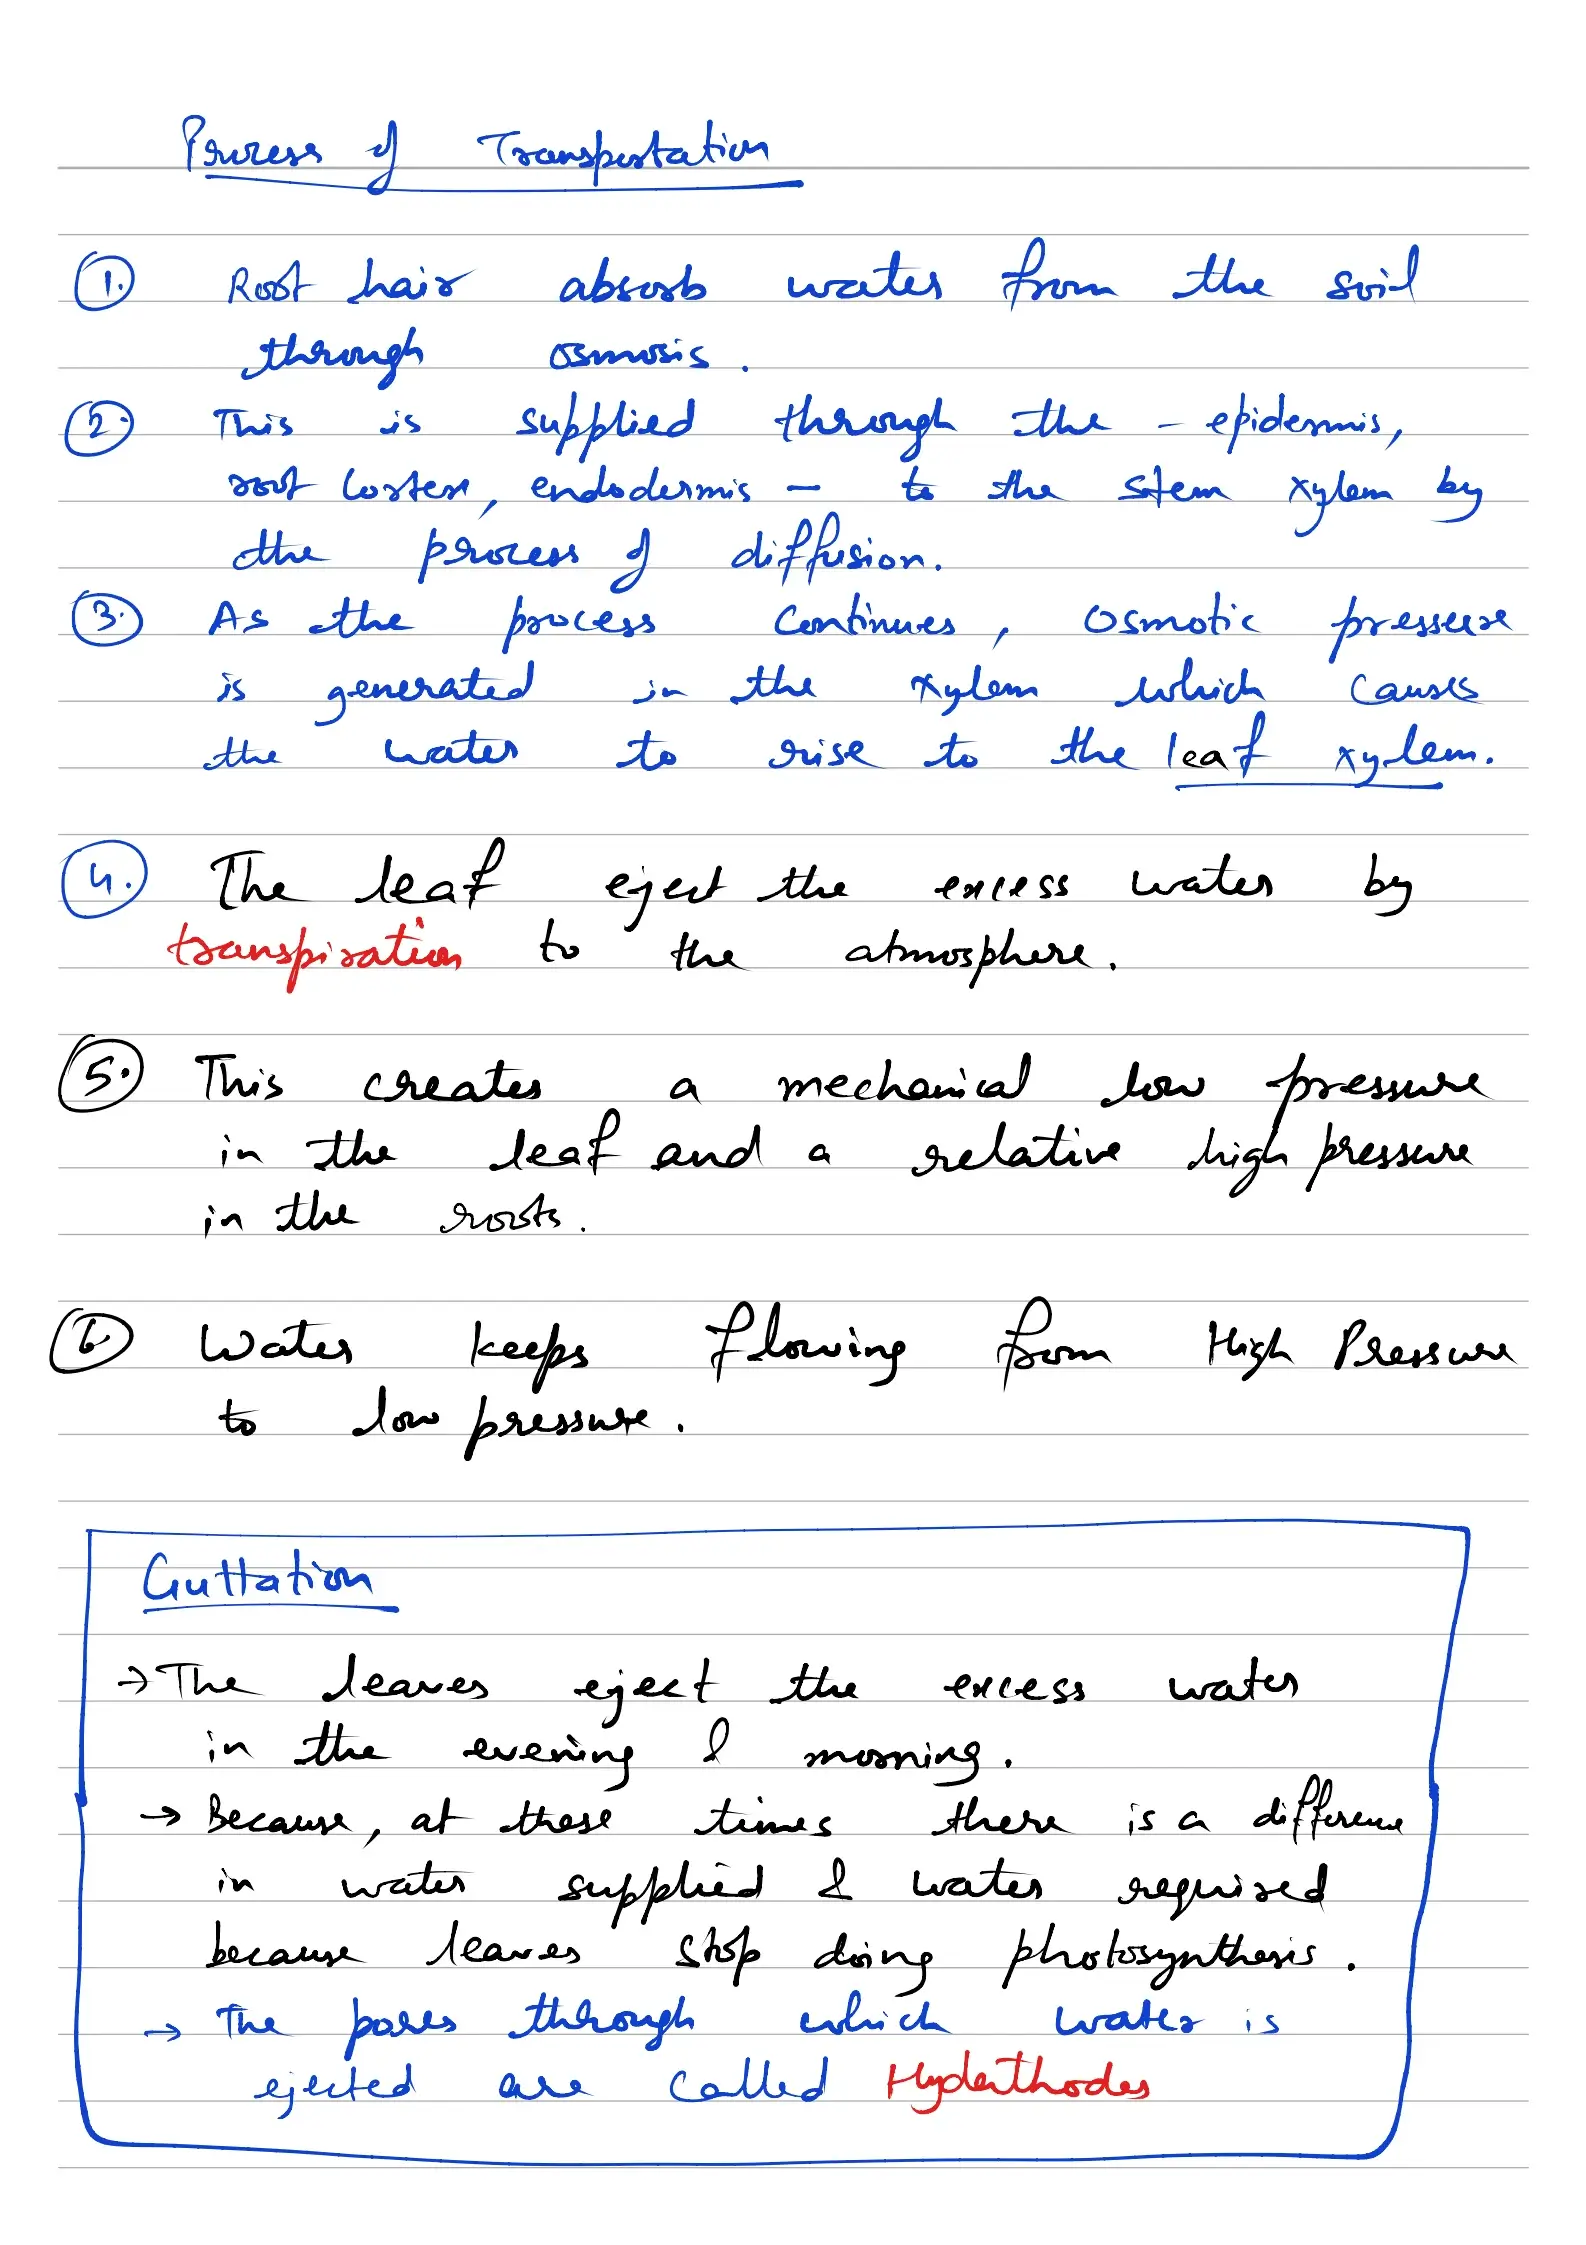 Process of Transportation
1. Root hair absorb water from the soil
through osmosis.
2. This is supplied through the - epidermis,
root cortex, endodermis - to the stem xylem by
the process of diffusion.
3. As the process continues, osmotic pressure
is generated in the xylem which causes
the water to rise to the leaf xylem.
4. The leaf eject the excess water by
transpiration to the atmosphere.
5. This creates a mechanical low pressure
in the leaf and a relative high pressure
in the roots.
6 Water keeps flowing from High Pressure
to low pressure.
Guttation
→ The leaves eject the excess water
in the evening & morning.
→ Because, at these times there is a difference
in water supplied & water required
because leaves stop doing photosynthesis.
→ The pores through which water is
ejected are called Hydathodes